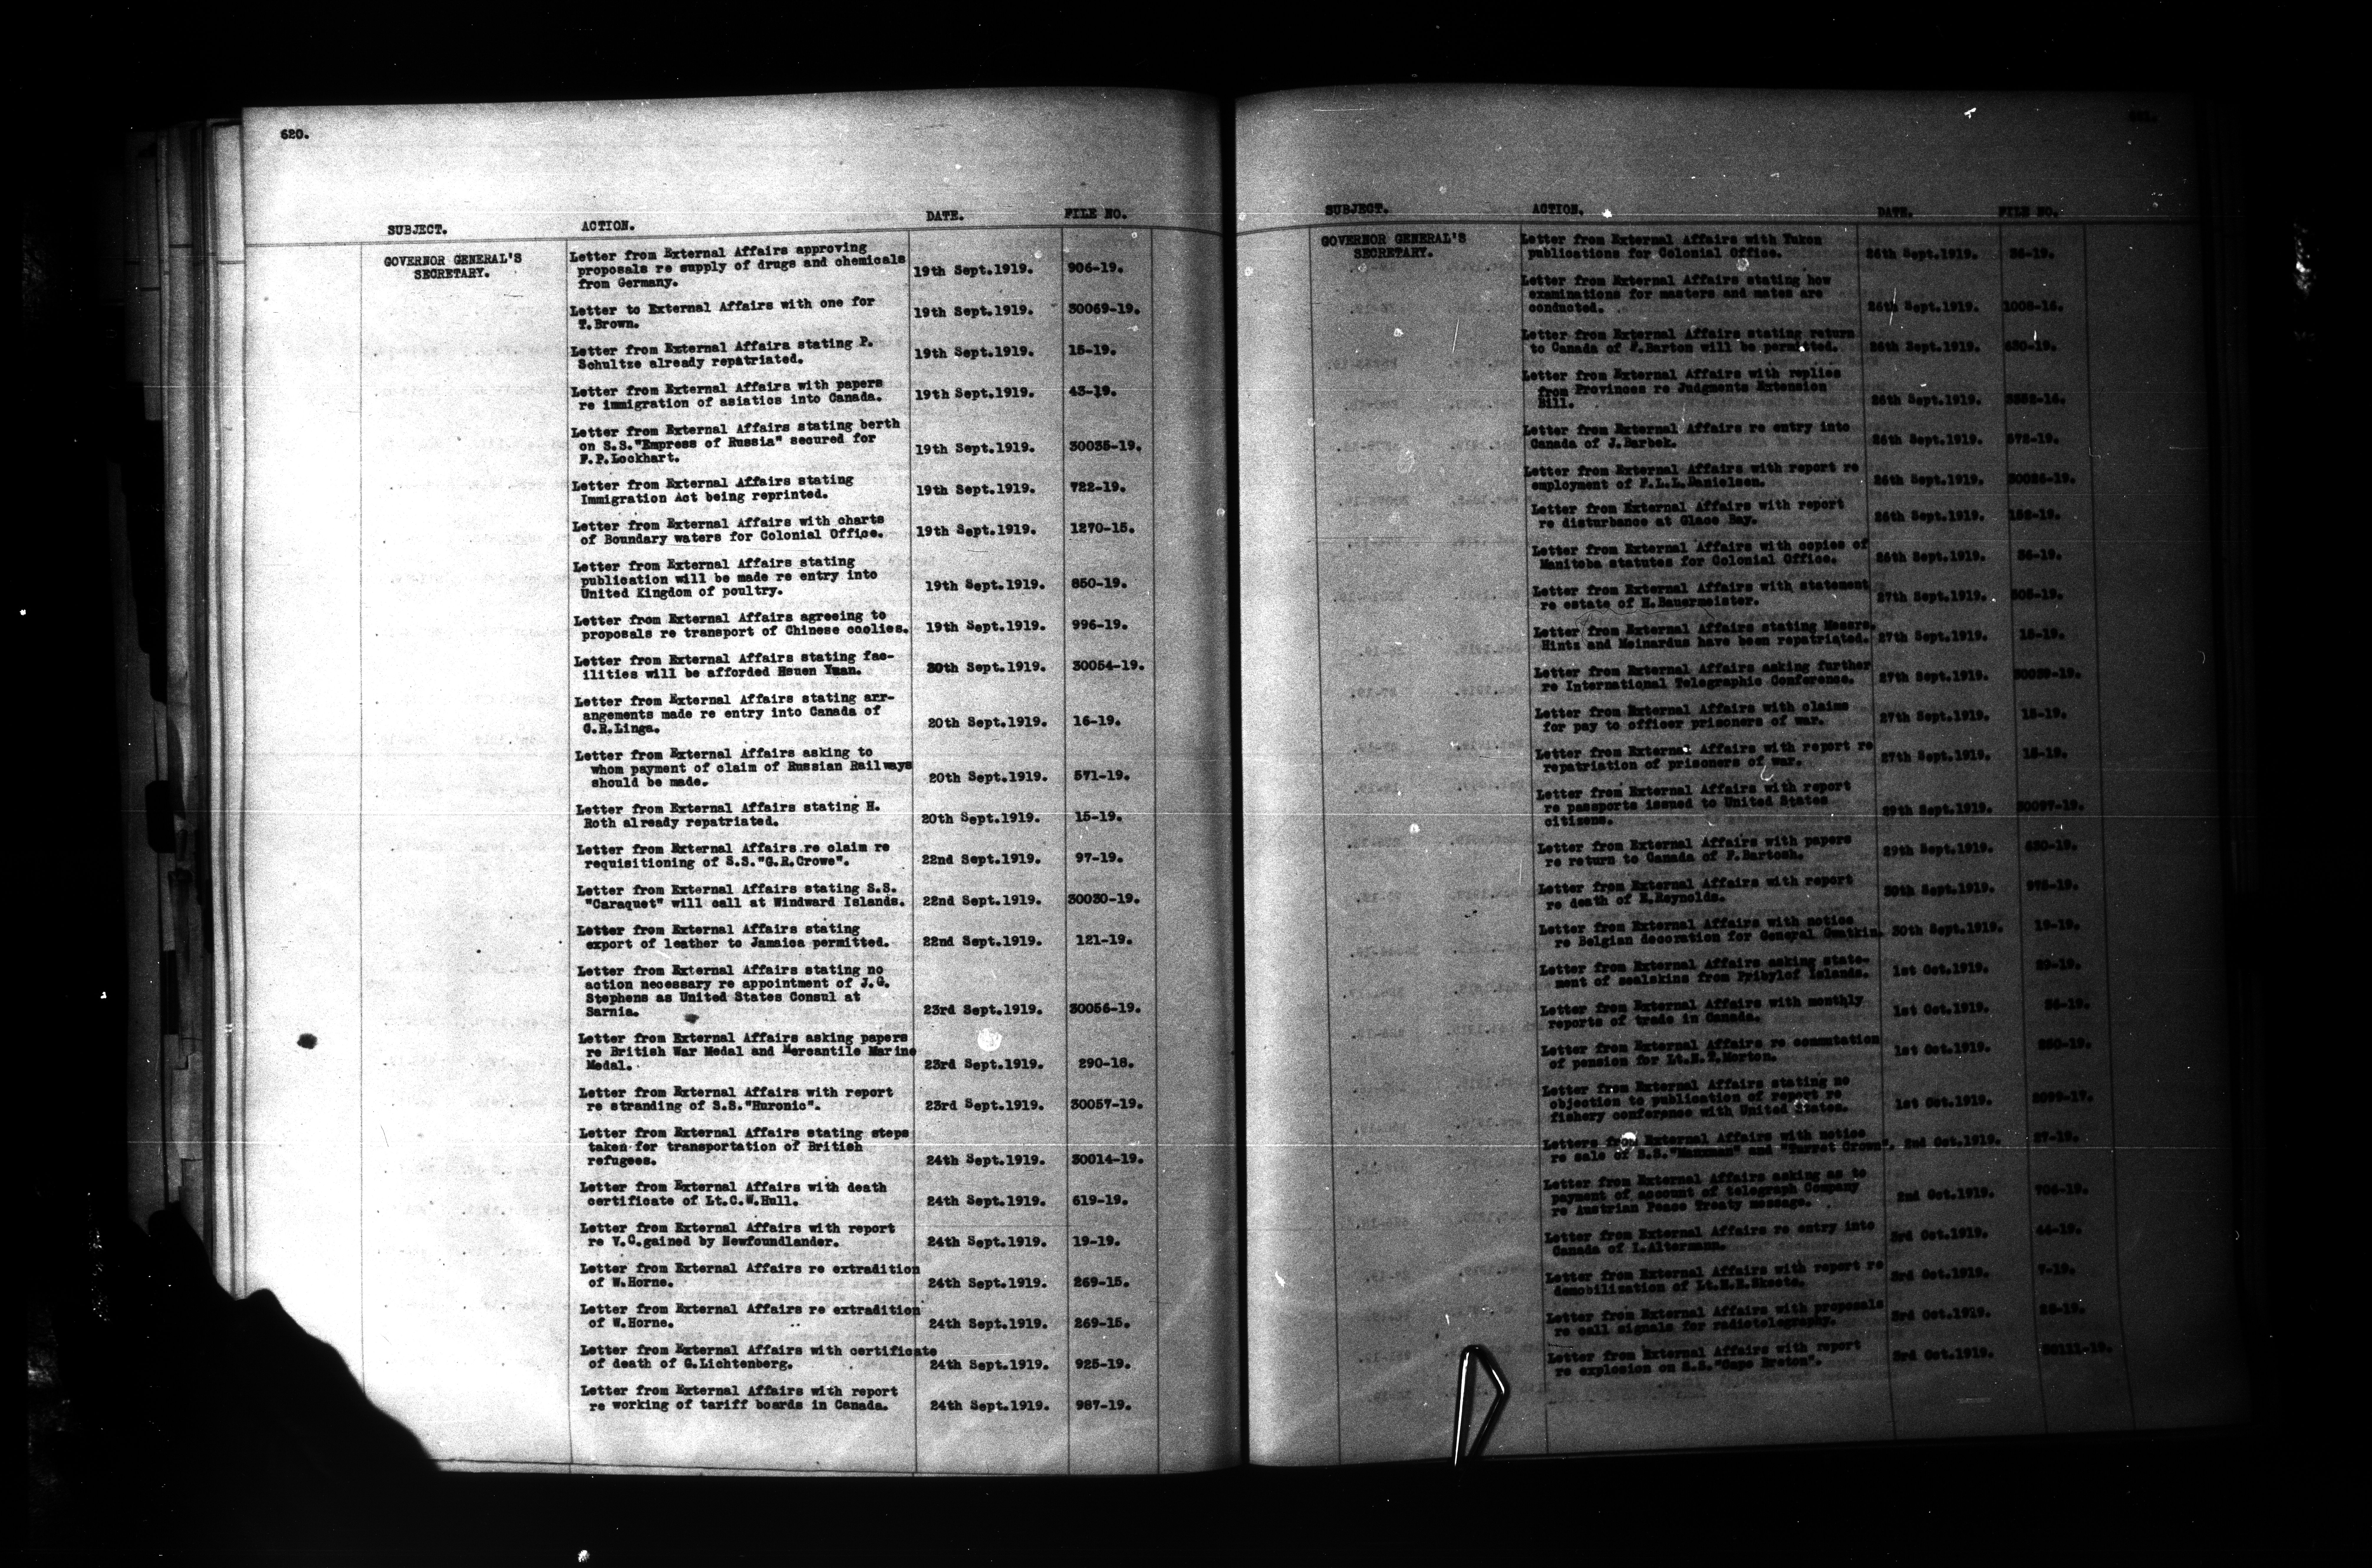 620.
SUBJECT. ACTION. DATE. FILE NO.
GOVERNOR GENERAL'S
SECRETARY.
Letter from External Affairs approving
proposals re supply of drugs and chemicals 19th Sept.1919. 906-19.
from Germany.
Letter to External Affairs with one for 19th Sept.1919. 30069-19.
T.Brown.
Letter from External Affairs stating P. 19th Sept.1919. 15-19.
Schultze already repatriated.
Letter from External Affairs with papers
re immigration of asiatics into Canada. 19th Sept.1919. 43-19.
Letter from External Affairs stating berth
on S.S."Empress of Russia" secured for 19th Sept.1919. 30035-19.
F.P.Lockhart.
Letter from External Affairs stating 19th Sept.1919. 722-19.
Immigration Act being reprinted.
Letter from External Affairs with charts
of Boundary waters for Colonial Office. 19th Sept.1919. 1270-15.
Letter from External Affairs stating
publication will be made re entry into 19th Sept.1919. 850-19.
United Kingdom of poultry.
Letter from External Affairs agreeing to
proposals re transport of Chinese coolies. 19th Sept.1919. 996-19.
Letter from External Affairs stating fac-
ilities will be afforded Hsuen Yuan. 20th Sept.1919. 30054-19.
Letter from External Affairs stating arr-
angements made re entry into Canada of 20th Sept.1919. 16-19.
G.R.Linga.
Letter from External Affairs asking to
whom payment of claim of Russian Railways 20th Sept.1919. 571-19.
should be made.
Letter from External Affairs stating H.
Roth already repatriated. 20th Sept.1919. 15-19.
Letter from External Affairs re claim re
requisitioning of S.S."G.R.Crowe". 22nd Sept.1919. 97-19.
Letter from External Affairs stating S.S.
"Caraquet" will call at Windward Islands. 22nd Sept.1919. 30030-19.
Letter from External Affairs stating
export of leather to Jamaica permitted. 22nd Sept.1919. 121-19.
Letter from External Affairs stating no
action necessary re appointment of J.G.
Stephens as United States Consul at
Sarnia. 23rd Sept.1919. 30056-19.
Letter from External Affairs asking papers
re British War Medal and Mercantile Marine
Medal. 23rd Sept.1919. 290-18.
Letter from External Affairs with report
re stranding of S.S."Huronic". 23rd Sept.1919. 30057-19.
Letter from External Affairs stating steps
taken for transportation of British
refugees. 24th Sept.1919. 30014-19.
Letter from External Affairs with death
certificate of Lt.C.W.Hull. 24th Sept.1919. 619-19.
Letter from External Affairs with report
re V.C.gained by Newfoundlander. 24th Sept.1919. 19-19.
Letter from External Affairs re extradition
of W.Horne. 24th Sept.1919. 269-15.
Letter from External Affairs re extradition
of W.Horne. 24th Sept.1919. 269-15.
Letter from External Affairs with certificate
of death of G.Lichtenberg. 24th Sept.1919. 925-19.
Letter from External Affairs with report
re working of tariff boards in Canada. 24th Sept.1919. 987-19.
SUBJECT. ACTION. DATE. FILE NO.
GOVERNOR GENERAL'S
SECRETARY.
Letter from External Affairs with Yukon
publications for Colonial Office. 26th Sept.1919. 36-19.
Letter from External Affairs stating how
examinations for masters and mates are
conducted. 26th Sept.1919. 1008-16.
Letter from External Affairs stating return
to Canada of F.Barton will be permitted. 26th Sept.1919. 630-19.
Letter from External Affairs with replies
from Provinces re Judgments Extension
Bill. 26th Sept.1919.
Letter from External Affairs re entry into
Canada of J.Barbek. 26th Sept.1919. 572-19.
Letter from External Affairs with report re
employment of F.L.L.Danielsen. 26th Sept.1919. 30026-19.
Letter from External Affairs with report
re disturbance at Glace Bay. 26th Sept.1919.
Letter from External Affairs with copies of
Manitoba statutes for Colonial Office. 26th Sept.1919. 36-19.
Letter from External Affairs with statement
re estate of H.Bauermeister. 27th Sept.1919. 305-19.
Letter from External Affairs stating Messrs.
Hintz and Meinardus have been repatriated. 27th Sept.1919. 15-19.
Letter from External Affairs asking further
re International Telegraphic Conference. 27th Sept.1919.
Letter from External Affairs with claims
for pay to officer prisoners of war. 27th Sept.1919. 15-19.
Letter from External Affairs with report re
repatriation of prisoners of war. 27th Sept.1919. 15-19.
Letter from External Affairs with report
re passports issued to United States
citizens. 29th Sept.1919. 30097-19.
Letter from External Affairs with papers
re return to Canada of F.Bartosh. 29th Sept.1919. 630-19.
Letter from External Affairs with report
re death of E.Reynolds. 30th Sept.1919. 975-19.
Letter from External Affairs with notice
re Belgian decoration for General Gwatkin. 30th Sept.1919. 19-19.
Letter from External Affairs asking state-
ment of sealskins from Pribylof Islands. 1st Oct.1919. 29-19.
Letter from External Affairs with monthly
reports of trade in Canada. 1st Oct.1919. 36-19.
Letter from External Affairs re commutation
of pension for Lt.N.T.Morton. 1st Oct.1919.
Letter from External Affairs stating no
objection to publication of report re
fishery conference with United States. 1st Oct.1919. 2099-17.
Letters from External Affairs with notice
re sale of S.S."Manxman" and "Turret Crown". 2nd Oct.1919. 27-19.
Letter from External Affairs asking as to
payment of account of telegraph Company
re Austrian Peace Treaty message. 2nd Oct.1919. 706-19.
Letter from External Affairs re entry into
Canada of I.Altermann. 3rd Oct.1919. 44-19.
Letter from External Affairs with report re
demobilisation of Lt.H.E.Skeete. 3rd Oct.1919. 7-19.
Letter from External Affairs with proposals
re call signals for radiotelegraphy. 3rd Oct.1919. 25-19.
Letter from External Affairs with report
re explosion on S.S."Cape Breton". 3rd Oct.1919. 30111-19.